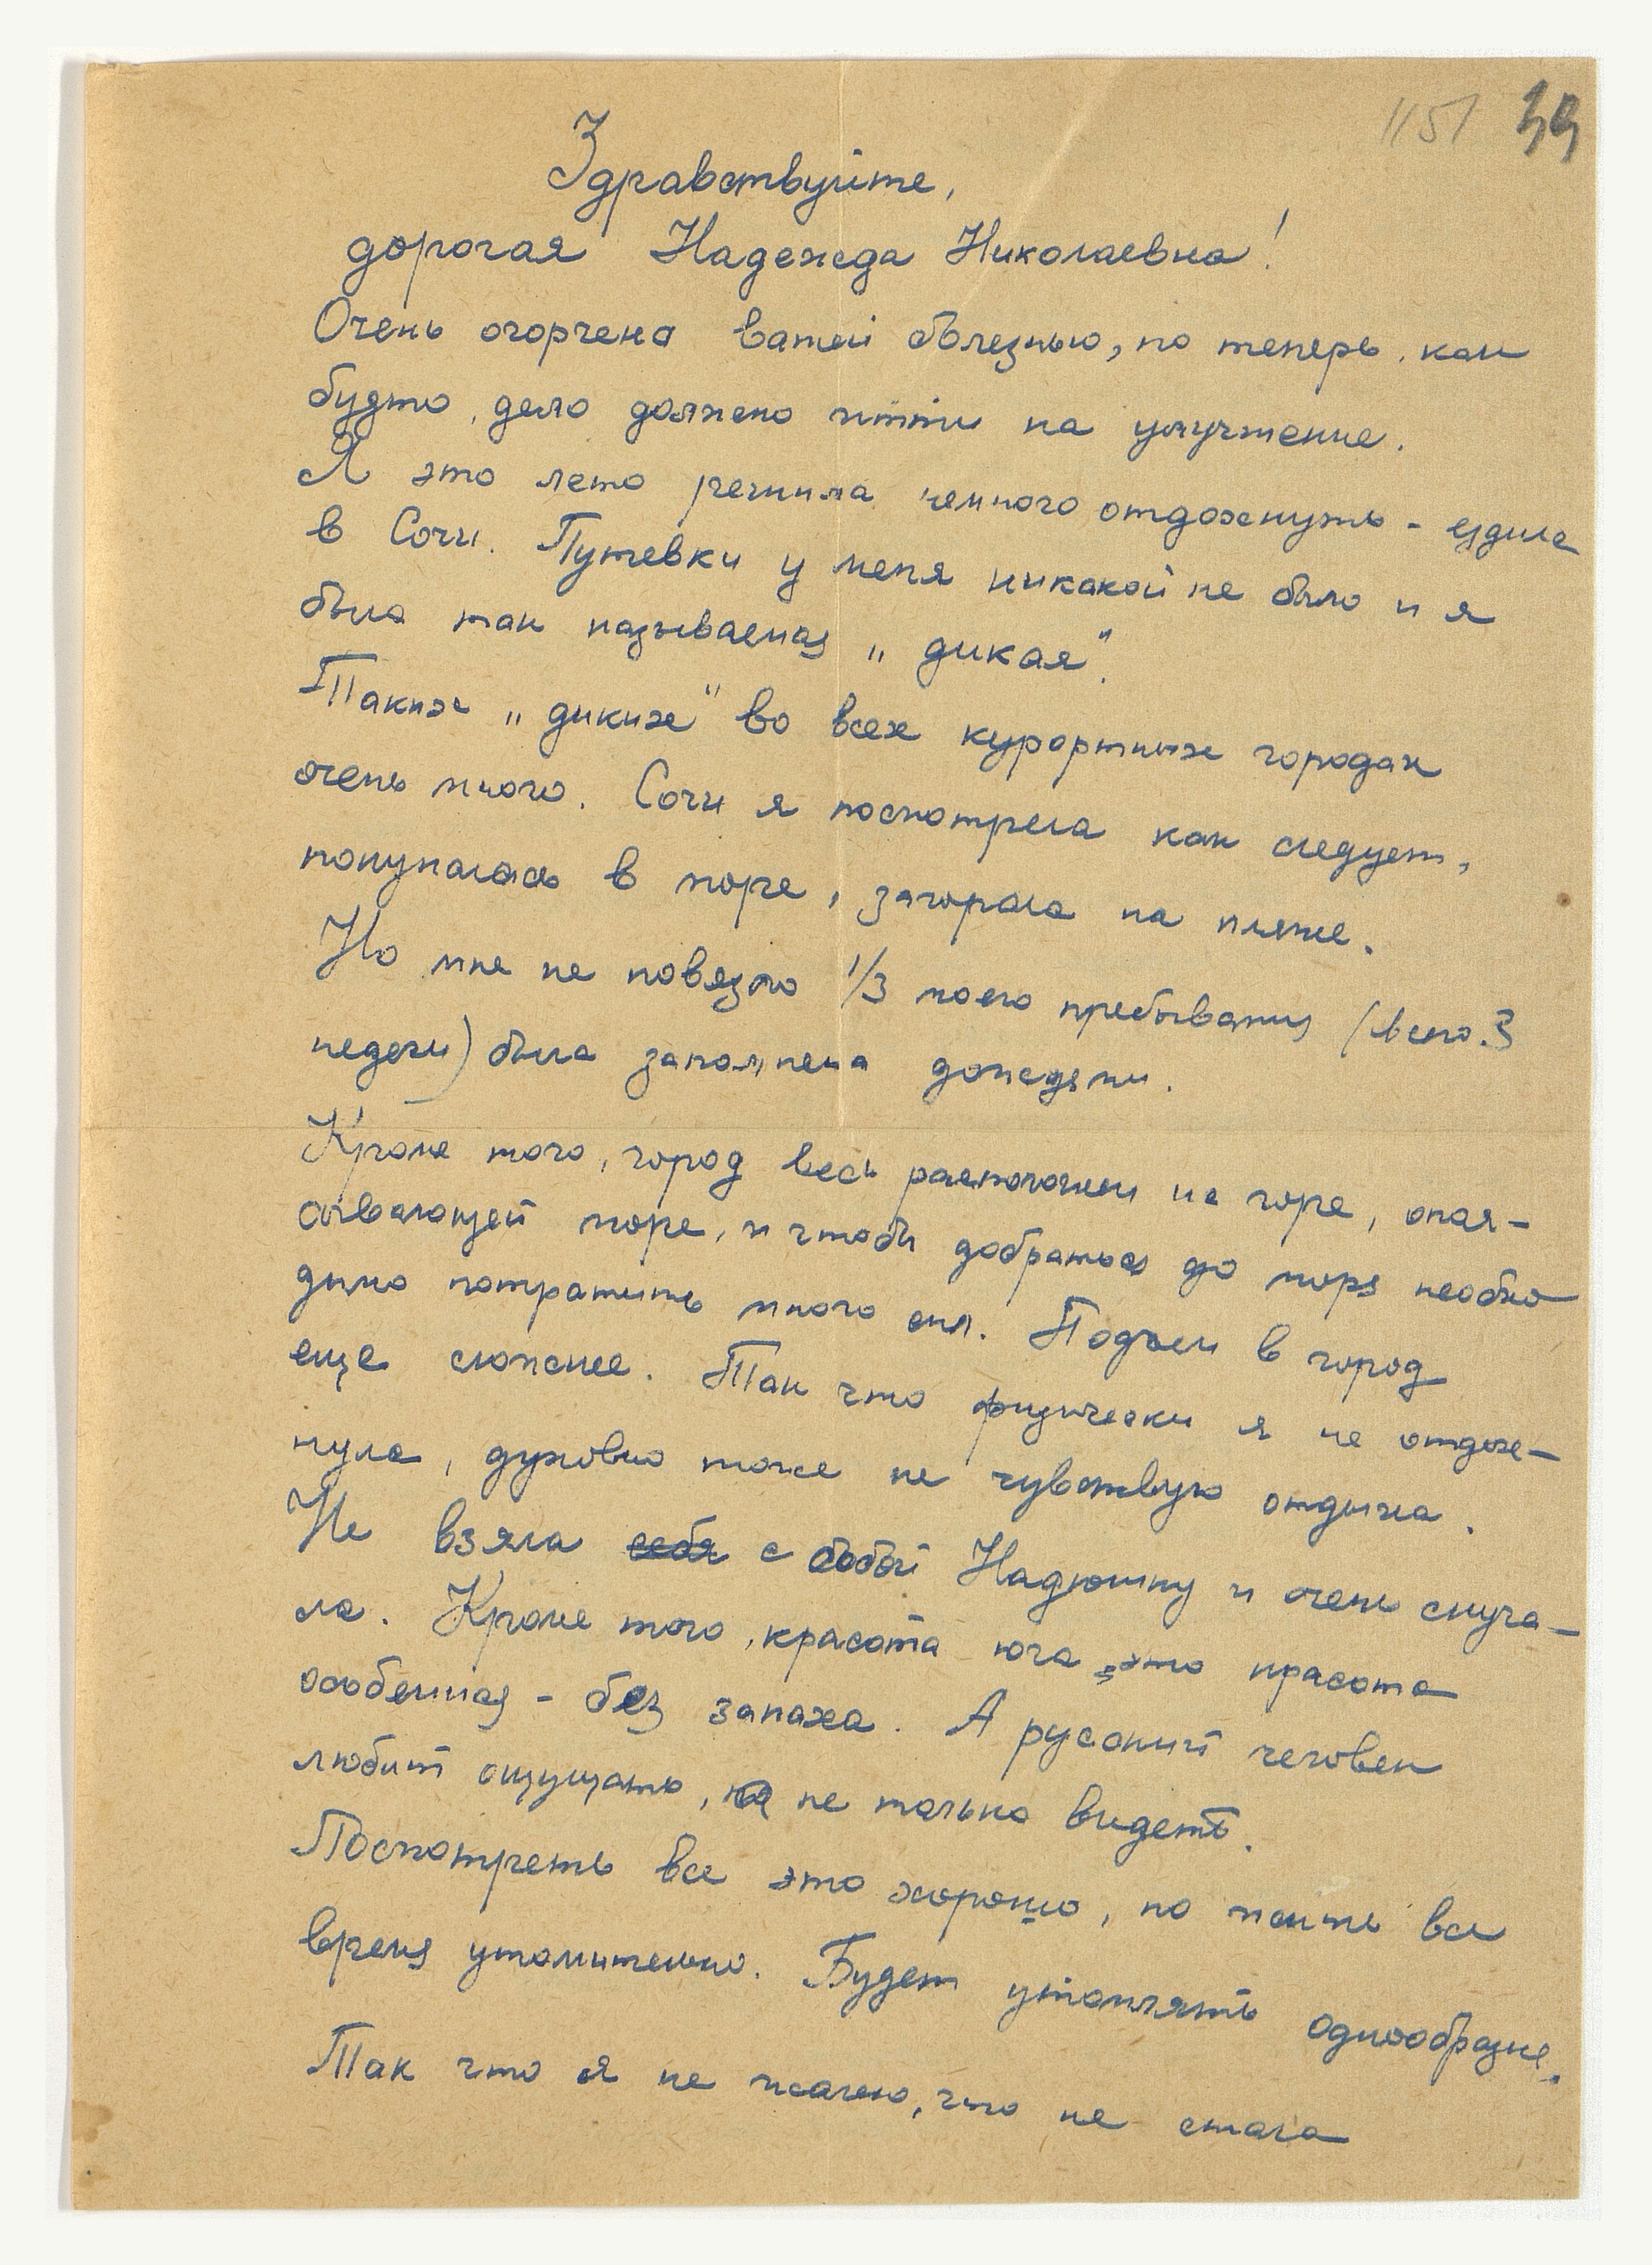 1151 39
Здравствуйте,
дорогая Надежда Николаевна!
Очень огорчена вашей болезнью, но теперь, как
будто, дело должно итти на улучшение.
Я это лето решила немного отдохнуть - ездила
в Сочи. Путевки у меня никакой не было и я
была так называемая „дикая".
Таких „диких" во всех курортных городах
очень много. Сочи я посмотрела как следует,
покупалась в море, загорала на пляже.
Но мне не повезло 1/3 моего пребывания (всего 3
недели) была заполнена дождями.
Кроме того, город весь расположен на горе, опоя-
сывающей море, и чтобы добраться до моря необхо
димо потратить много сил. Подъем в город
еще сложнее. Так что физически я не отдох-
нула, духовно тоже не чувствую отдыха.
Не взяла себя с собой Надюшку и очень скуча-
ла. Кроме того, красота юга это красота
особенная - без запаха. А русский человек
любит ощущать, а не только видеть.
Посмотреть все это хорошо, но жить все
время утомительно. Будет утомлять однообразие.
Так что я не жалею, что не стала